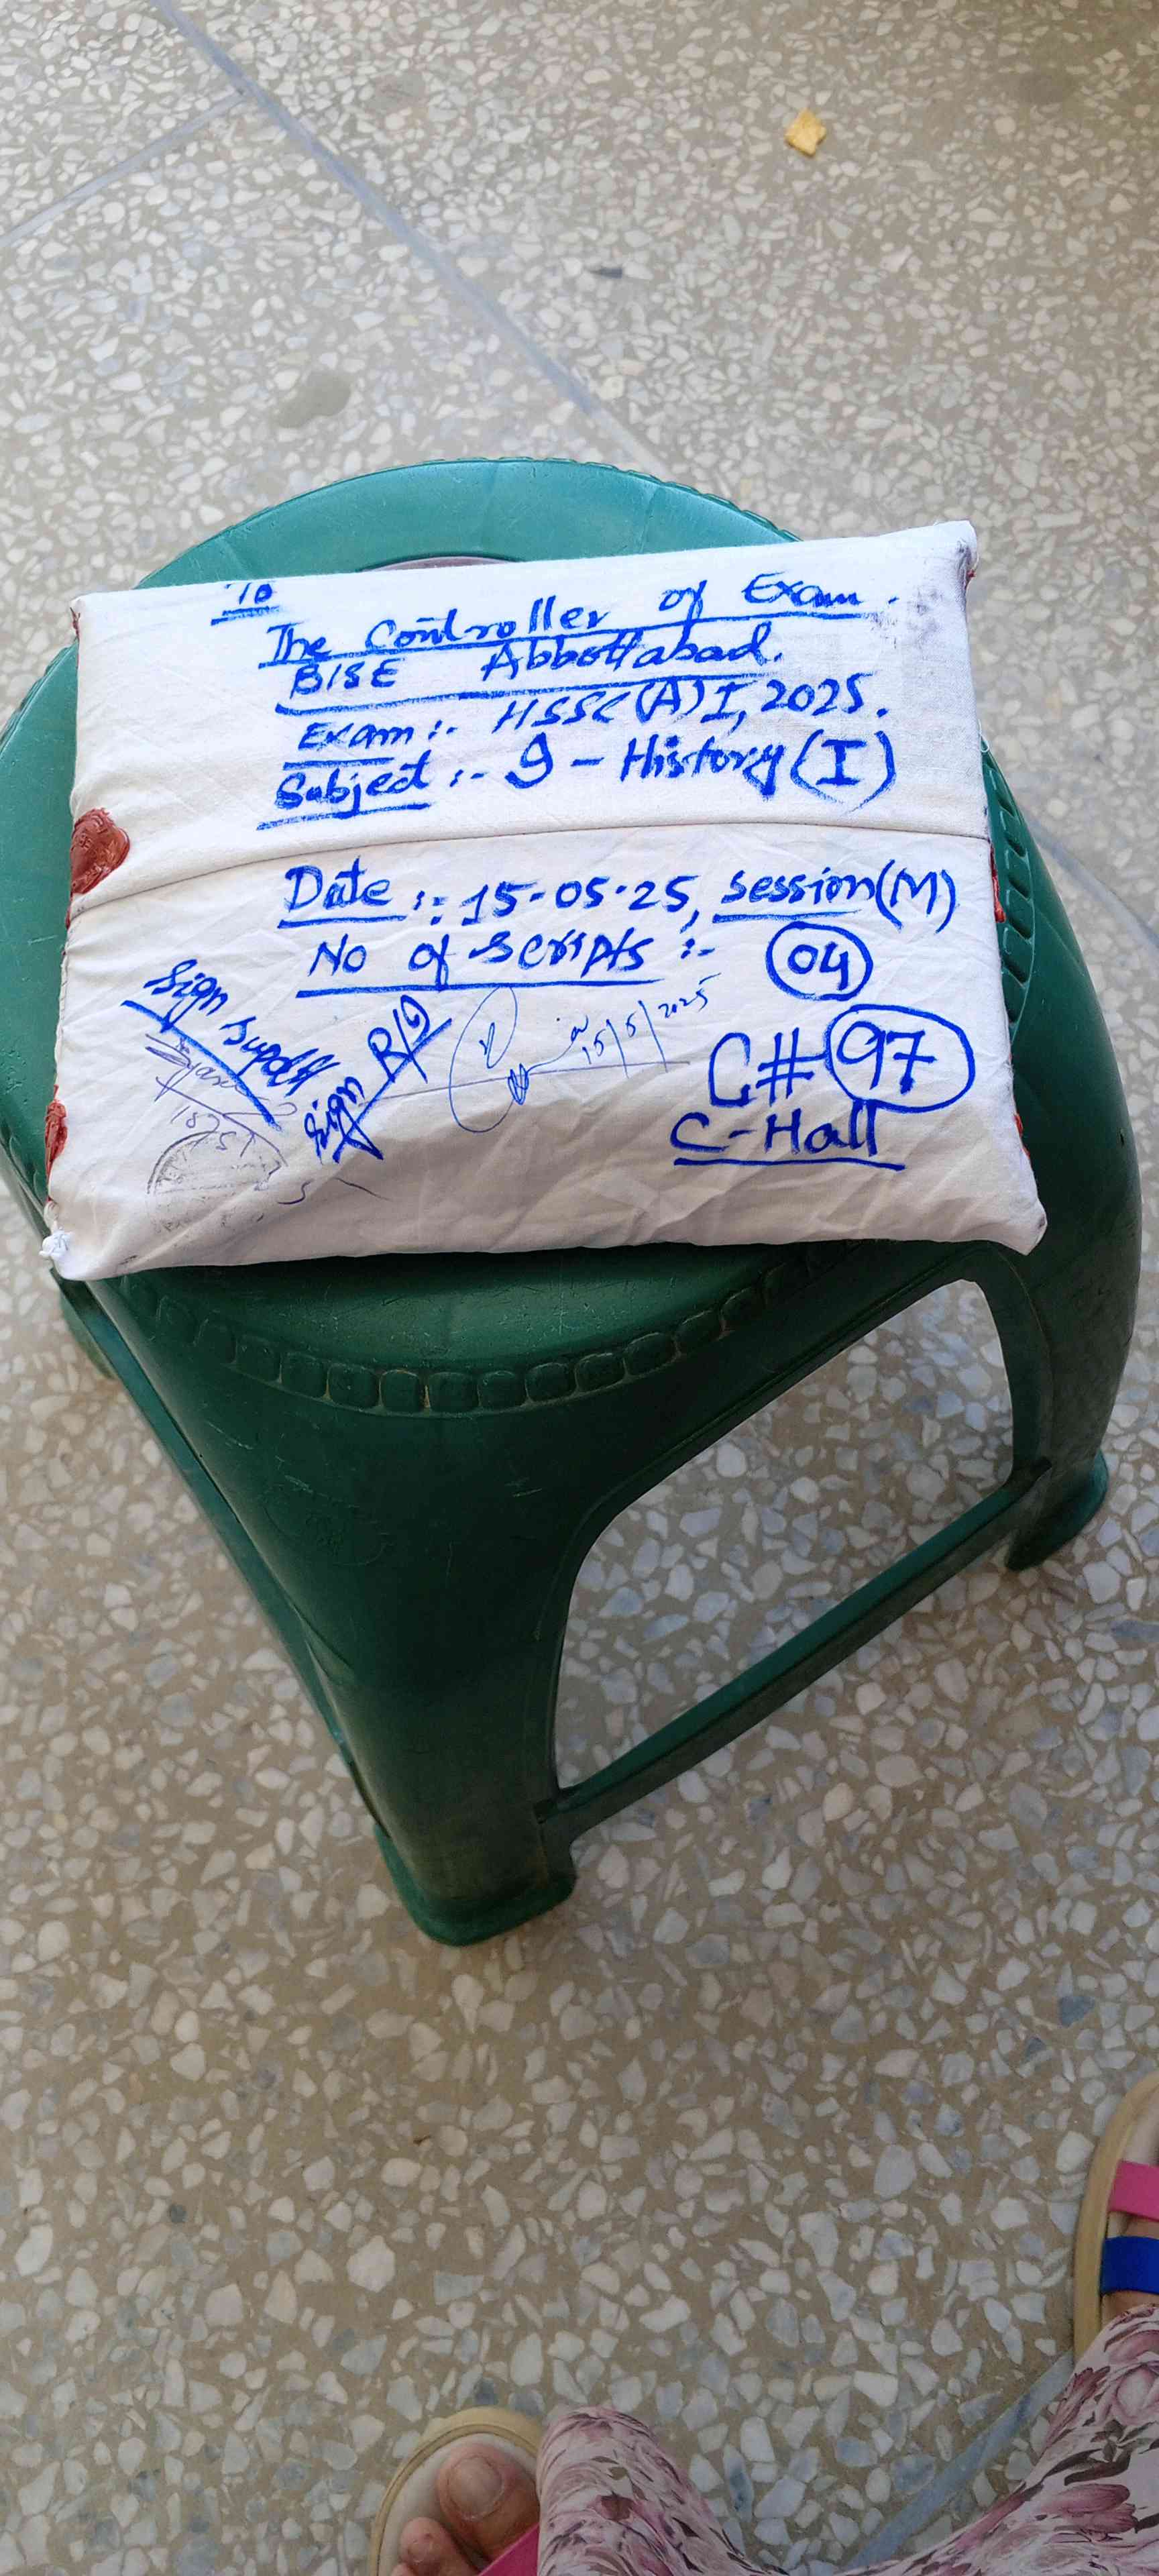 To
The Controller of Exam.
BISE Abbottabad.
Exam:- HSSC(A)I, 2025.
Subject:- 9-History(I)
Date:: 15-05-25, Session(M)
No of Scripts:- 04
Sign Supdtt
Sign R/I
15/5/2025
C# 97
C-Hall